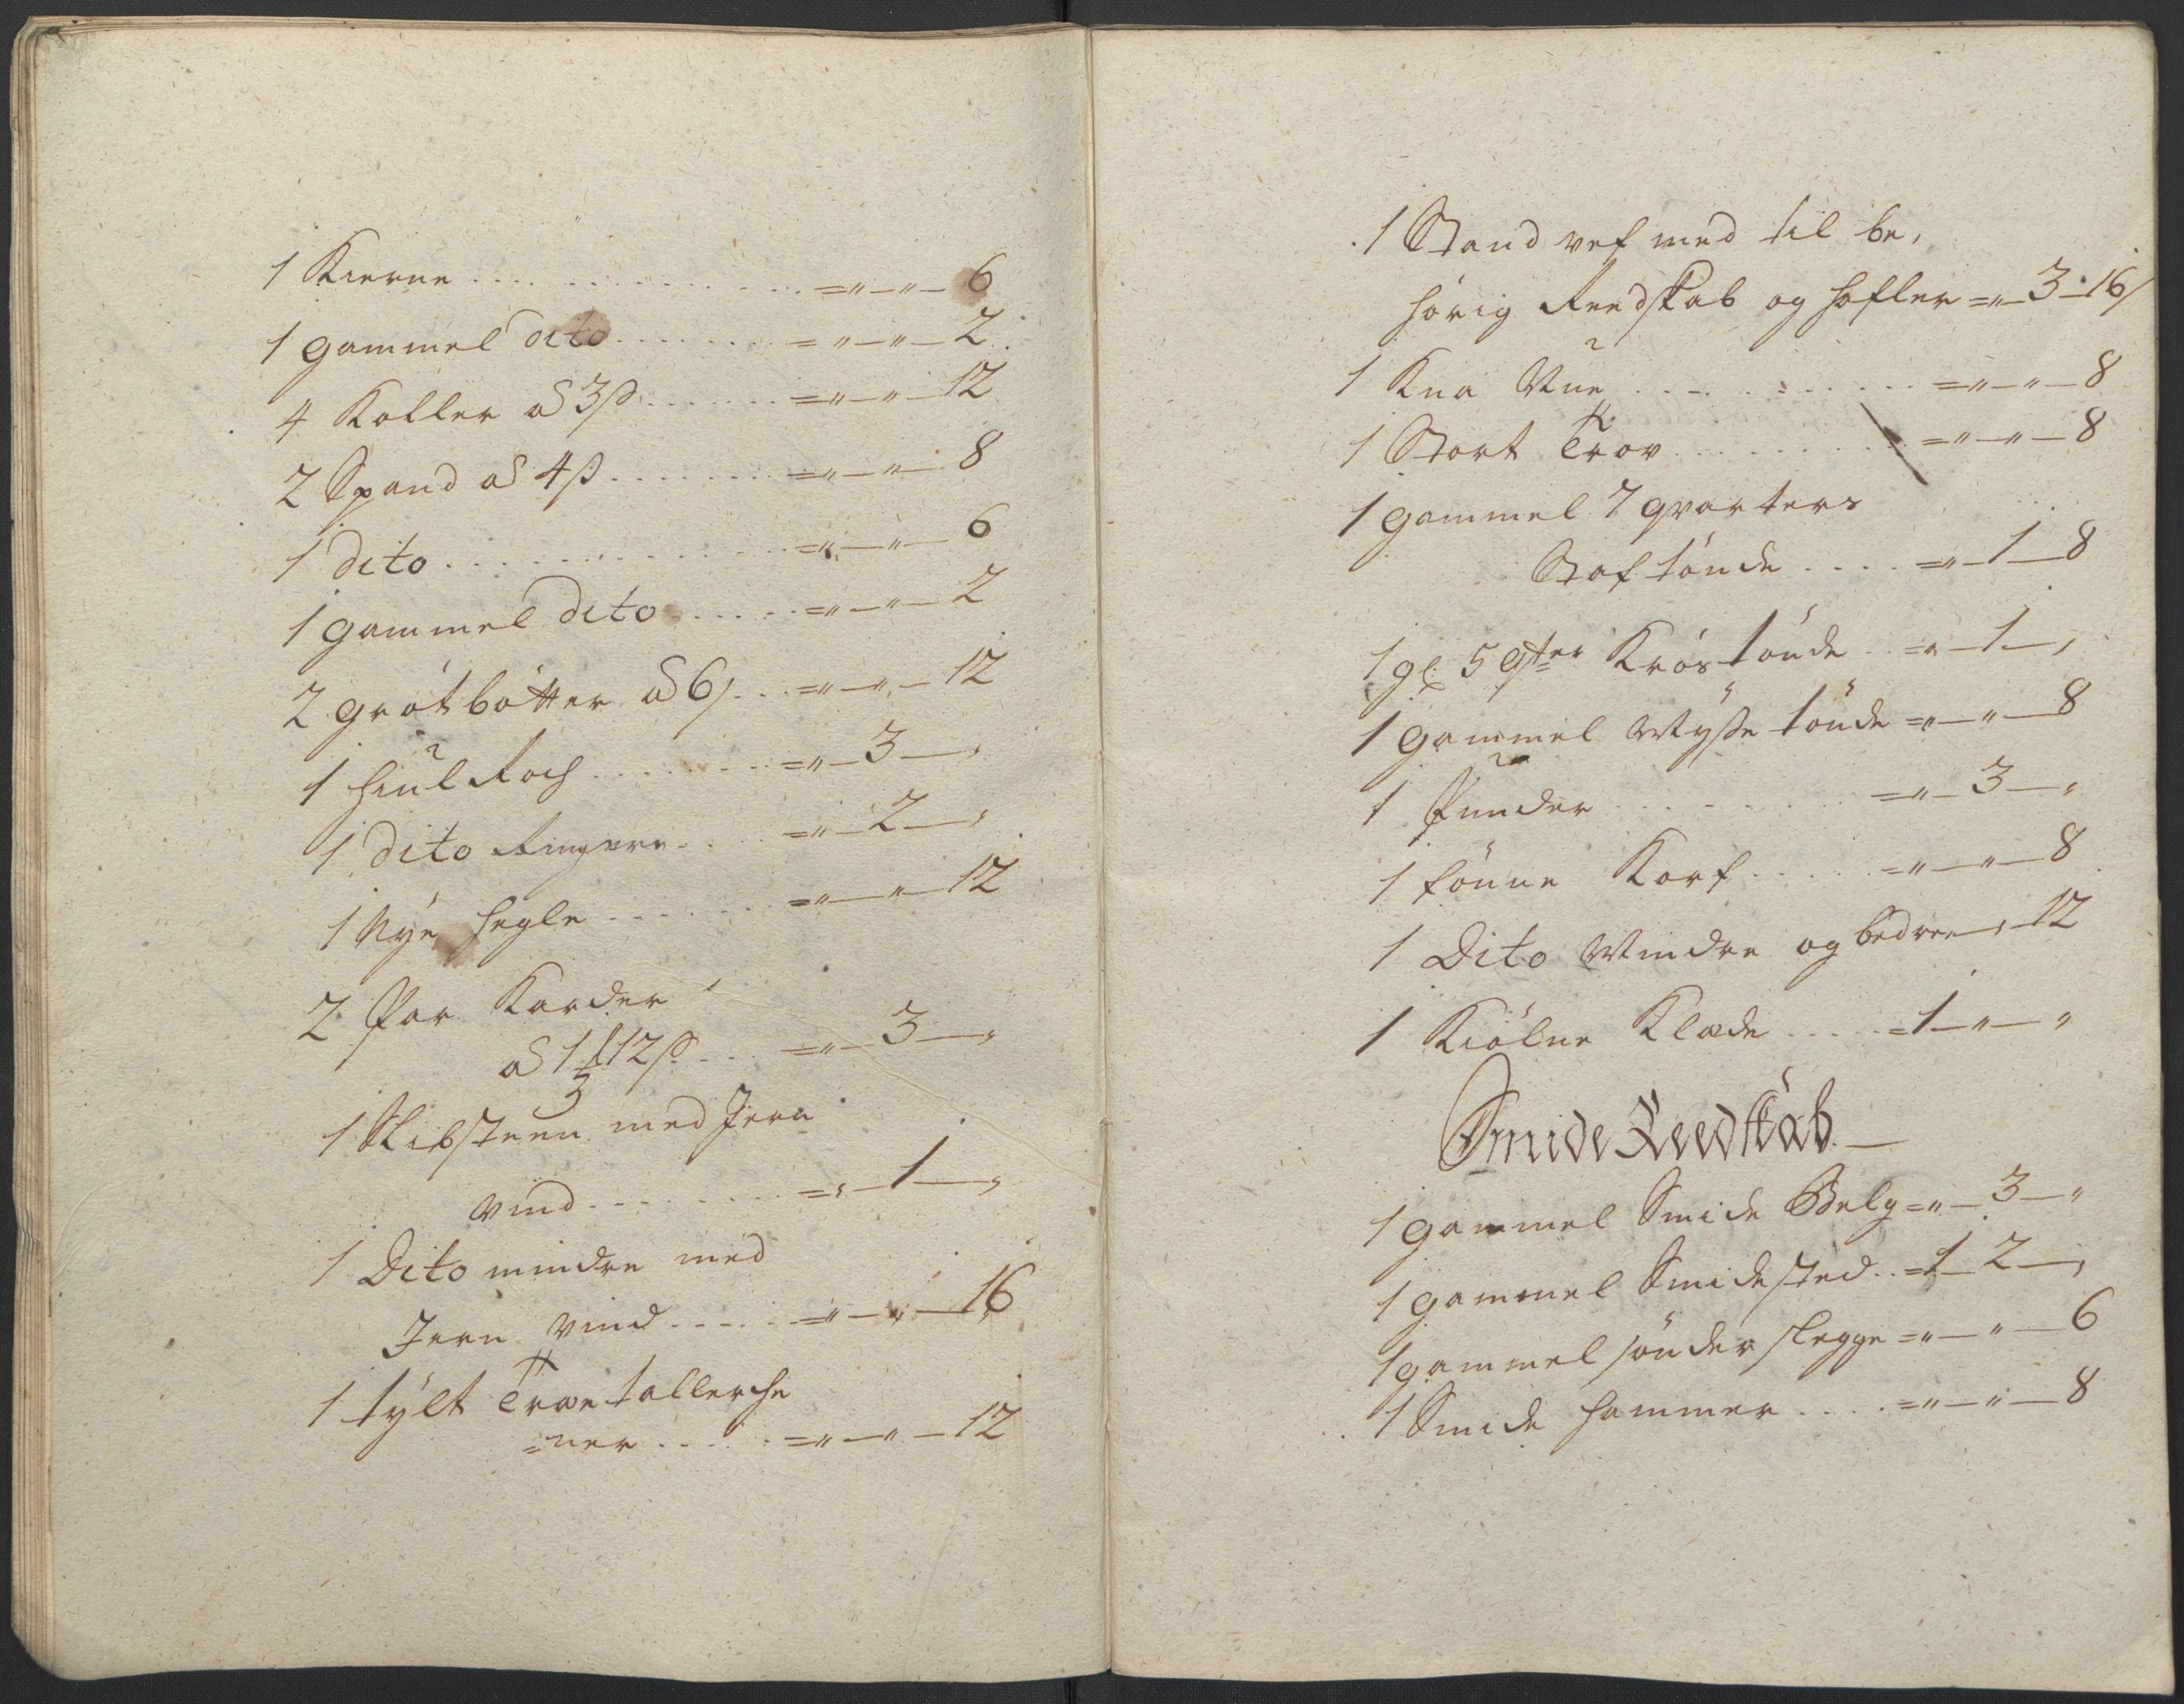 1 Kierne . . . . . . . . . . =„—„—6
1 gammel dito . . . . . . =„—„—2
4 Koller a 3ß . . . . . =„—„—12
2 Spand a 4ß . . . . . =„—„—8
1 dito . . . . . . . . . . =„—„—6
1 gammel dito . . . . =„—„—2
2 grøtbøtter a 6ß . . =„—„—12
1 Hiul Roch . . . . . . =„—3—„
1 dito Ringere . . . =„—2—„
1 Nye Hegle . . . . . =„—„—12
2 Par Karder
a 1 12ß . . . =„—3—„
1 Slibsteen med Jern
vind . . . . . . . =„—1—„
1 Dito mindre med
Jern vind . . . . . =„—„—16
1 tylt Træe tallerche
=ner . . . . . =„—„—12
1 Stand vef med til be,
hørig Reedskab og Hofler =„—3—16
1 Kna . . . . . . . =„—„—8
1 Stort Trov . . . . . . =„—„—8
1 gammel 7 qvarters
Staftønde . . . . =„—1—8
1 gl. 5 qter Krøstønde . . =„—1—„
1 gammel Mysse tønde =„—„—8
1 Punder . . . . . . . =„—3—„
1 Tønne Korf . . . . . =„—„—8
1 Dito Mindre og bedre =„—„—12
1 Kiølne Klæde . . . . =1—„—„
Smide Reedskab.—
1 gammel Smide Belg =„—3—„
1 gammel Smidested . . =1—2—„
1 gammel sønder slegge =„—„—6
1 Smide Hammer . . . . =„—„—8